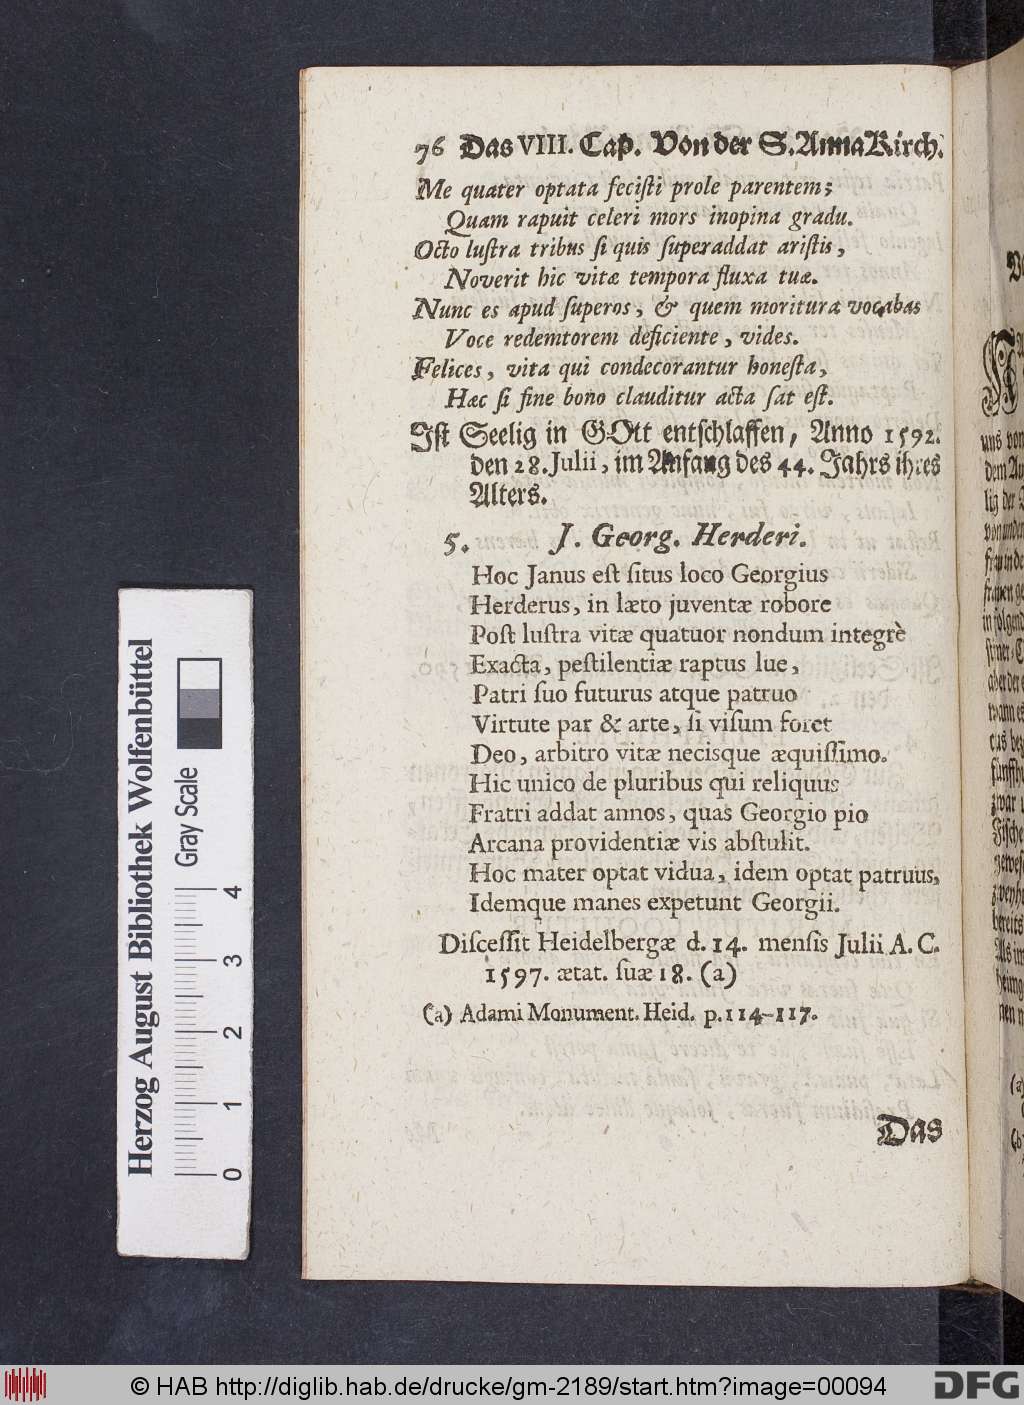 76 Das VIII. Cap. Von der S. Anna Kirch.
Me quater optata feciſti prole parentem;
Quam rapuit celeri mors inopina gradu.
Octo luſtra tribus ſi quis ſuperaddat ariſtis,
Noverit hic vitæ tempora fluxa tuæ.
Nunc es apud ſuperos, & quem moritura vocabas
Voce redemtorem deficiente, vides.
Felices, vita qui condecorantur honeſta,
Hæc ſi fine bono clauditur acta ſat eſt.
Iſt Seelig in GOtt entſchlaffen, Anno 1592.
den 28. Julii, im Anfang des 44. Jahrs ihres
Alters.
5. J. Georg. Herderi.
Hoc Janus eſt ſitus loco Georgius
Herderus, in læto juventæ robore
Poſt luſtra vitæ quatuor nondum integrè
Exacta, peſtilentiæ raptus lue,
Patri ſuo futurus atque patruo
Virtute par & arte, ſi viſum foret
Deo, arbitro vitæ necisque æquiſſimo.
Hic unico de pluribus qui reliquus
Fratri addat annos, quas Georgio pio
Arcana providentiæ vis abſtulit.
Hoc mater optat vidua, idem optat patruus,
Idemque manes expetunt Georgii.
Diſceſſit Heidelbergæ d. 14. menſis Julii A. C.
1597. ætat. ſuæ 18. (a)
(a) Adami Monument. Heid. p. 114-117.
Das
uns von
lig der
von andern
in folgend
aber der
wann es
fünffhu
zwar
bereits
Als im
nen n
(a)
(b)
Herzog August Bibliothek Wolfenbüttel
Gray Scale
0 1 2 3 4
© HAB http://diglib.hab.de/drucke/gm-2189/start.htm?image=00094
DFG